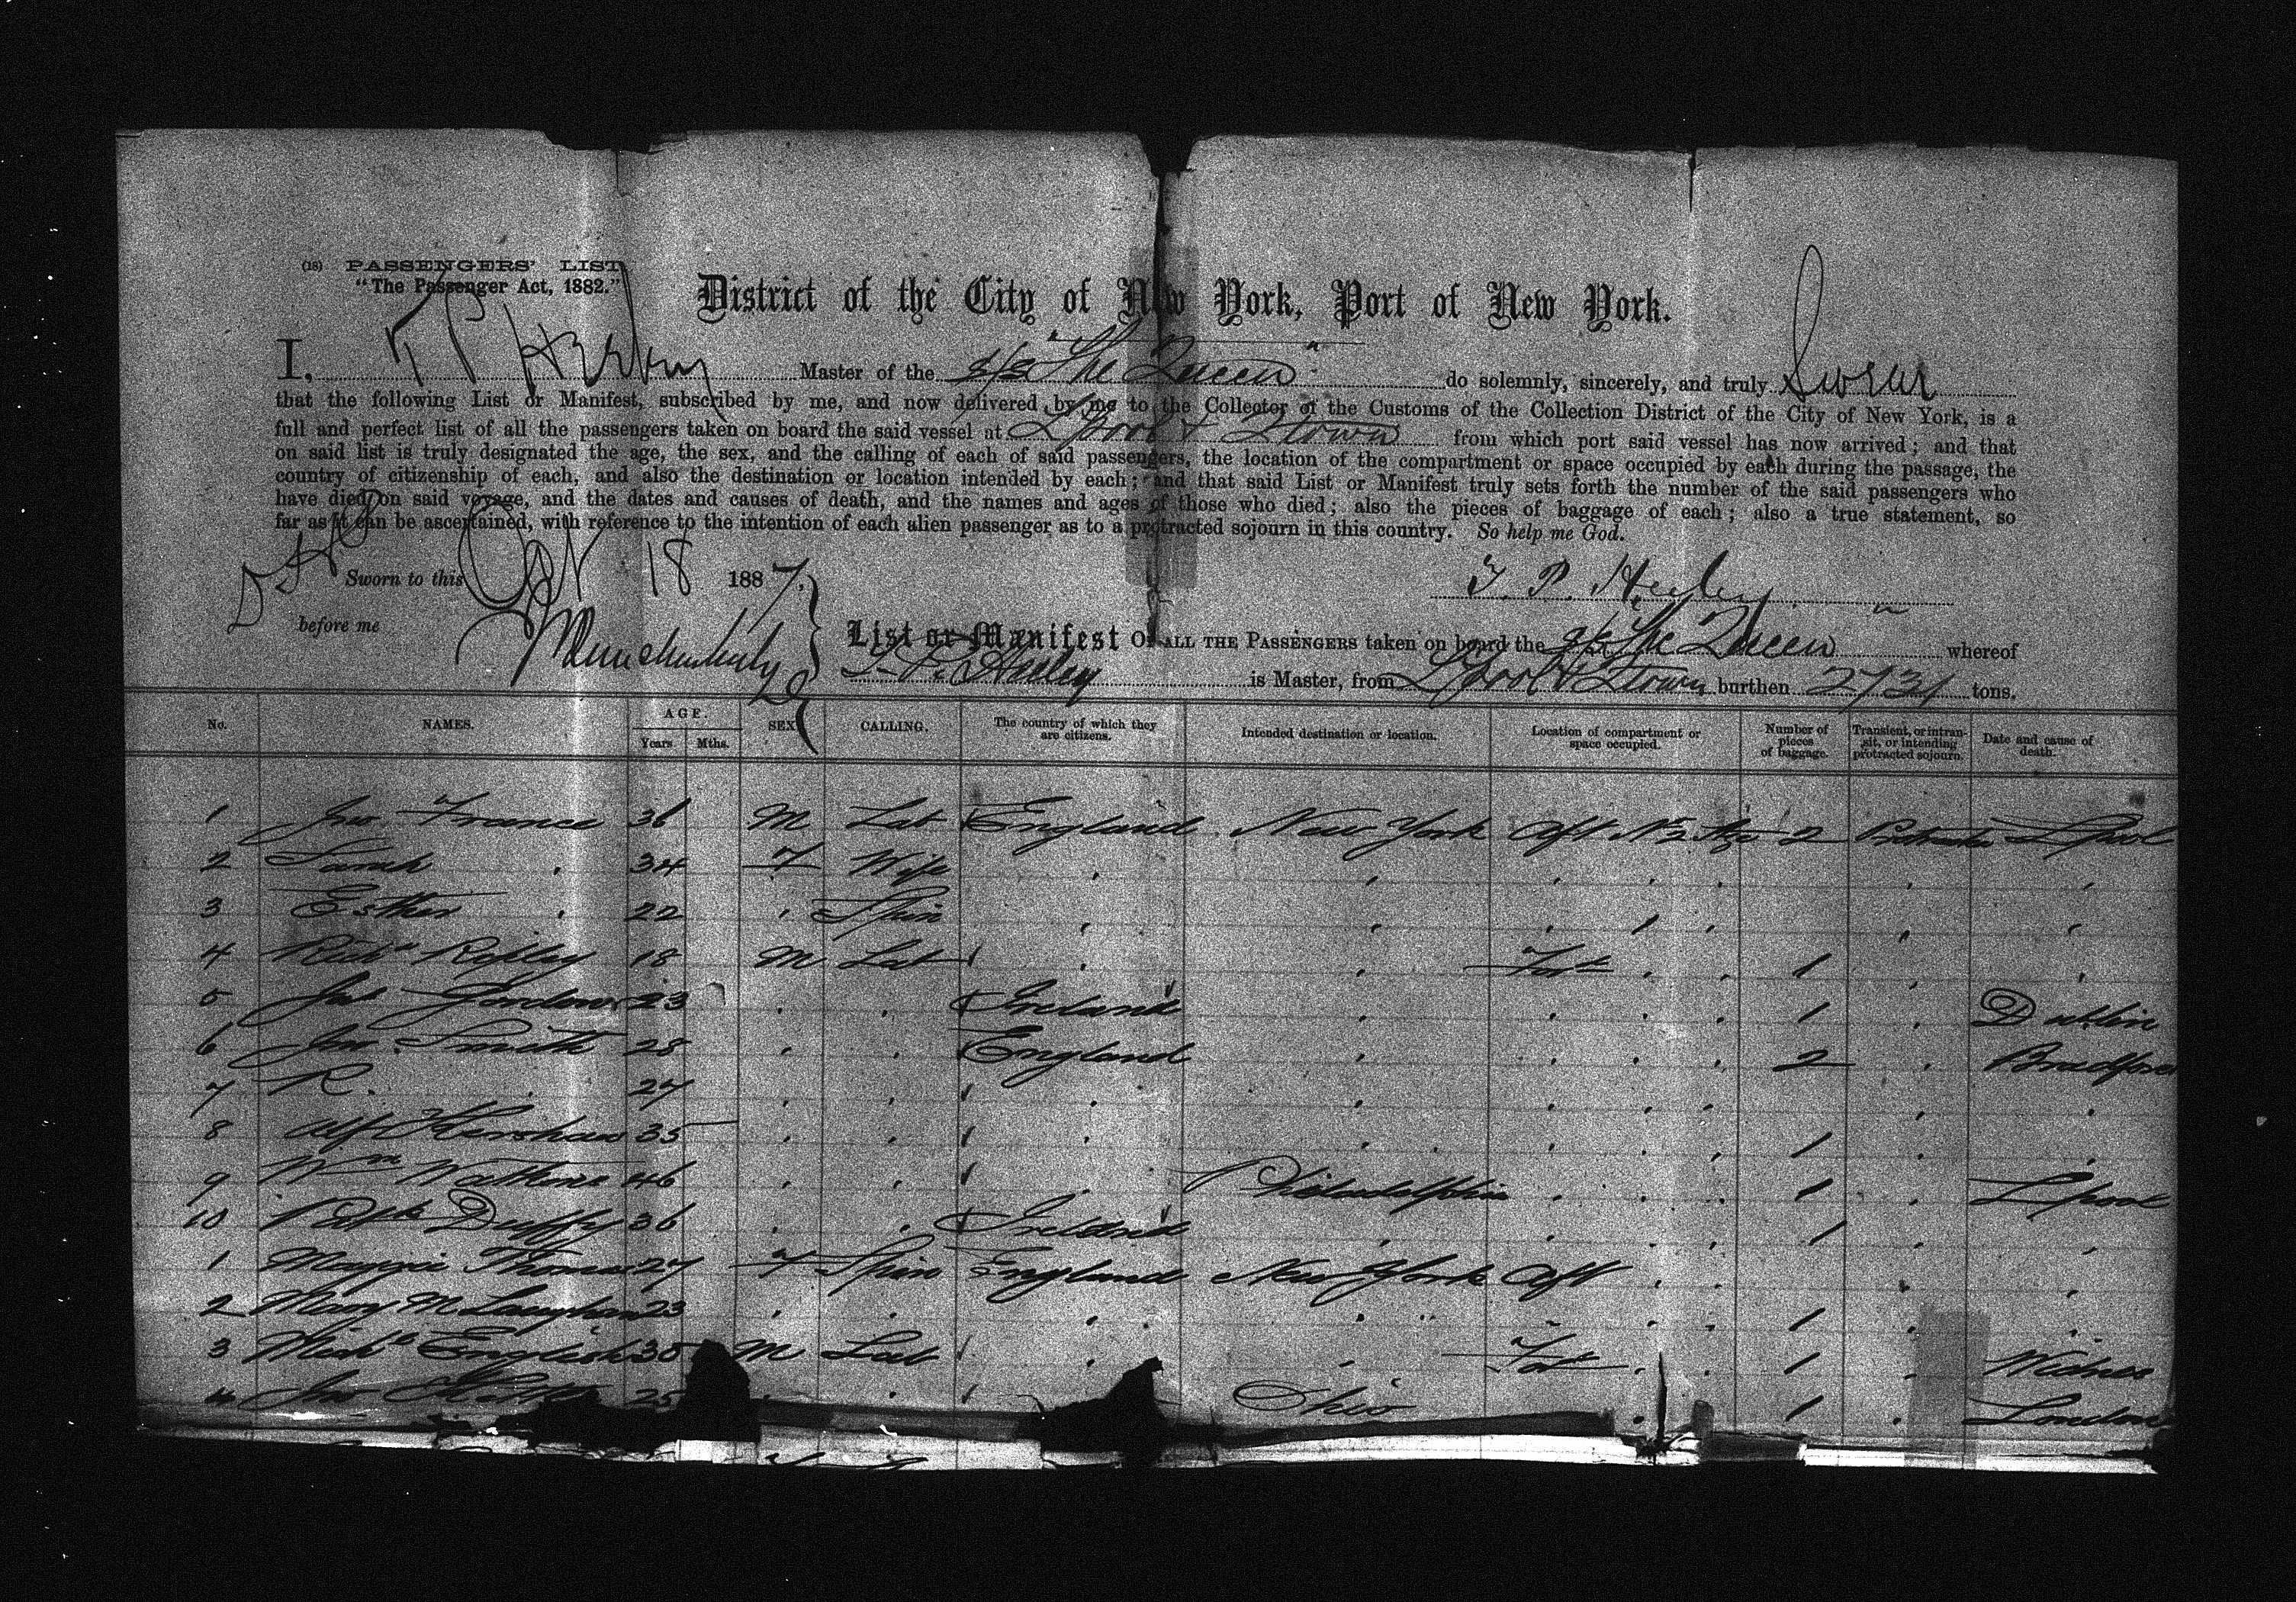 (18) PASSENGERS' LIST
"The Passenger Act, 1882."
District of the City of New York, Port of New York.
I, T P Heeley Master of the s/s "The Queen" do solemnly, sincerely, and truly Swear
that the following List or Manifest, subscribed by me, and now delivered by me to the Collector of the Customs of the Collection District of the City of New York, is a
full and perfect list of all the passengers taken on board the said vessel at Lpool & Qtown from which port said vessel has now arrived; and that
on said list is truly designated the age, the sex, and the calling of each of said passengers, the location of the compartment or space occupied by each during the passage, the
country of citizenship of each, and also the destination or location intended by each; and that said List or Manifest truly sets forth the number of the said passengers who
have died on said voyage, and the dates and causes of death, and the names and ages of those who died; also the pieces of baggage of each; also a true statement, so
far as it can be ascertained, with reference to the intention of each alien passenger as to a protracted sojourn in this country. So help me God.
Sworn to this 18 1887. T. P. Heeley
before me
List or Manifest OF ALL THE PASSENGERS taken on board the s/s The Queen whereof
T. P. Heeley is Master, from Lpool & Qtown burthen 2731 tons.
No. NAMES. AGE. Years Mths. SEX CALLING. The country of which they are citizens. Intended destination or location. Location of compartment or space occupied. Number of pieces of baggage. Transient, or intransit, or intending protracted sojourn. Date and cause of death.
1 Jno France 36 M Lab England New York Aft No 2 Stge 2 Protracted Lpool
2 Sarah " 34 F Wife " " " " " " "
3 Esther " 22 " Spin " " " " " " "
4 Richd Repley 18 M Lab " " For " " 1 " "
5 Jas Gordon 23 " " Ireland " " " " 1 " Dublin
6 Jno Smith 28 " " England " " " " 2 " Bradford
7 R. " 27 " " " " " " " " "
8 Alf Kershaw 35 " " " " " " " 1 " "
9 Wm Watkins 46 " " " Philadelphia " " " 1 " Lpool
10 Duffy 36 " " Ireland " " " " 1 " "
1 Maggie Thomas 27 F Spin England New York Aft " " " "
2 Mary McLaughan 23 " " " " " " 1 " "
3 Michl English 30 M Lab " " For " " 1 " Widnes
4 Jno 25 " " " Ohio " 1 " London